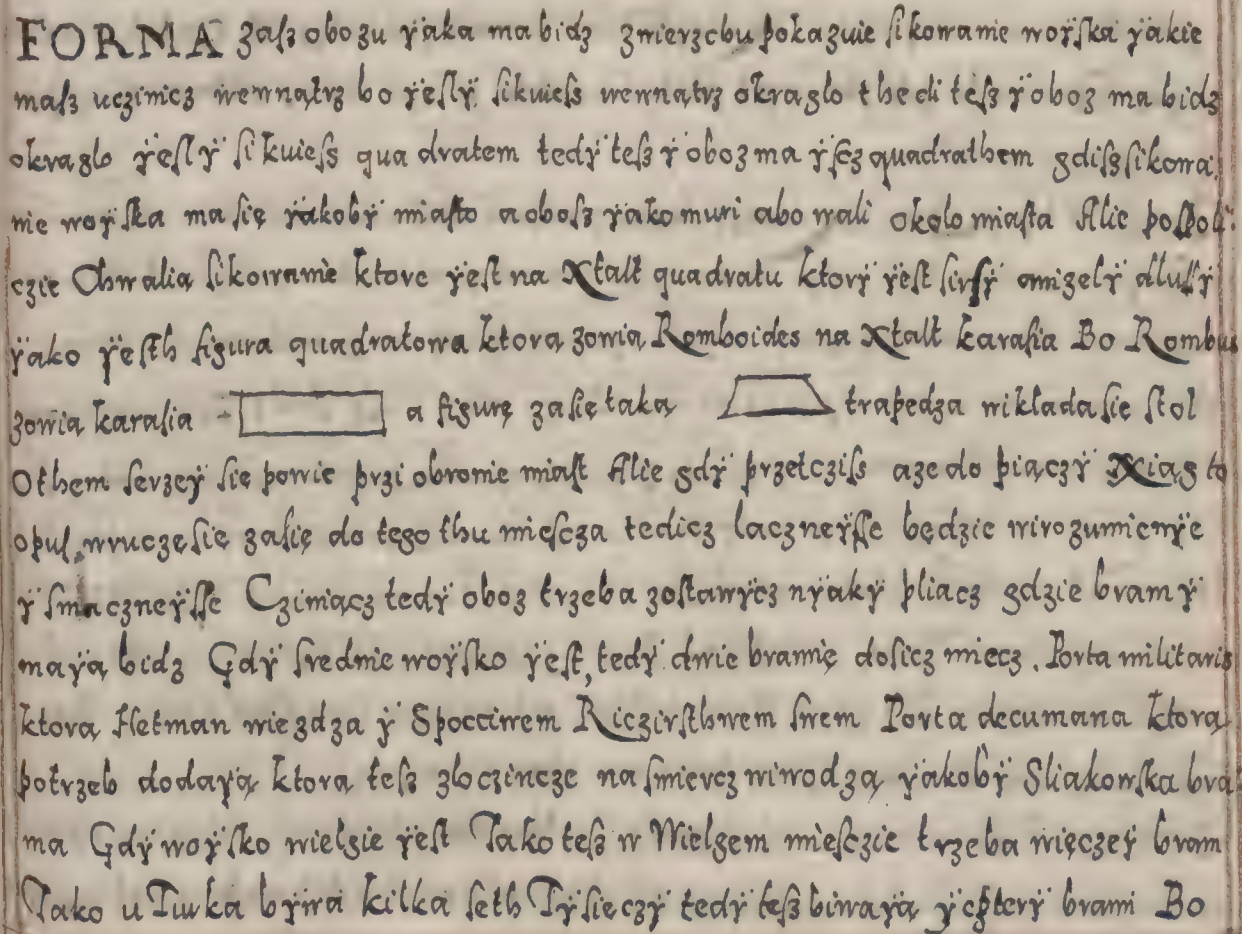 FORMA zasz obozu ÿaka ma bidz zmierzchu pokazuie sikowanie woÿska ÿakie
masz uczinicz wewnątrz bo ÿeslÿ sikuiess wewnątrz okraglo thedi tesz ÿ oboz ma bidz
okraglo ÿeslÿ sikuiess quadratem tedÿ tesz ÿ oboz ma ÿscz quadrathem gdisz sikowa
nie woÿska ma się ÿakobÿ miasto a obosz ÿako muri abo wali okolo miasta Alie pospoli
czie Chwalią sikowanie ktore ÿest na Xtalt quadratu ktorÿ ÿest sirsÿ anizelÿ dlusÿ
ÿako ÿesth figura quadratowa ktorą zowią Romboides na Xtalt karasia Bo Rombus
zowią karasia a figurę zasię taką trapedza wiklada się stol
Othem serzeÿ się powie przi obronie miast Alie gdÿ przetcziss aze do piączÿ Xiąg to
opus wrucze się zasię do tego thu miescza tedicz laczneÿsse będzie wirozumienÿe
ÿ smaczneÿsse Cziniącz tedÿ oboz trzeba zostawÿcz nÿakÿ pliacz gdzie bramÿ
maÿą bidz Gdÿ srednie woÿsko ÿest, tedÿ dwie bramię dosicz miecz. Porta militaris
ktorą Hetman wiezdza ÿ Spocciwem Riczirsthwem swem Porta decumana ktorą
potrzeb dodaÿą ktorą tesz zloczincze na smiercz wiwodzą ÿakobÿ Sliakowska bra
ma Gdÿ woÿsko wielgie ÿest Tako tesz w Wielgem miesczie trzeba więczeÿ bram
Tako u Turka bÿwa kilka seth Tÿsięczÿ tedÿ tesz biwaÿą ÿ czterÿ brami Bo